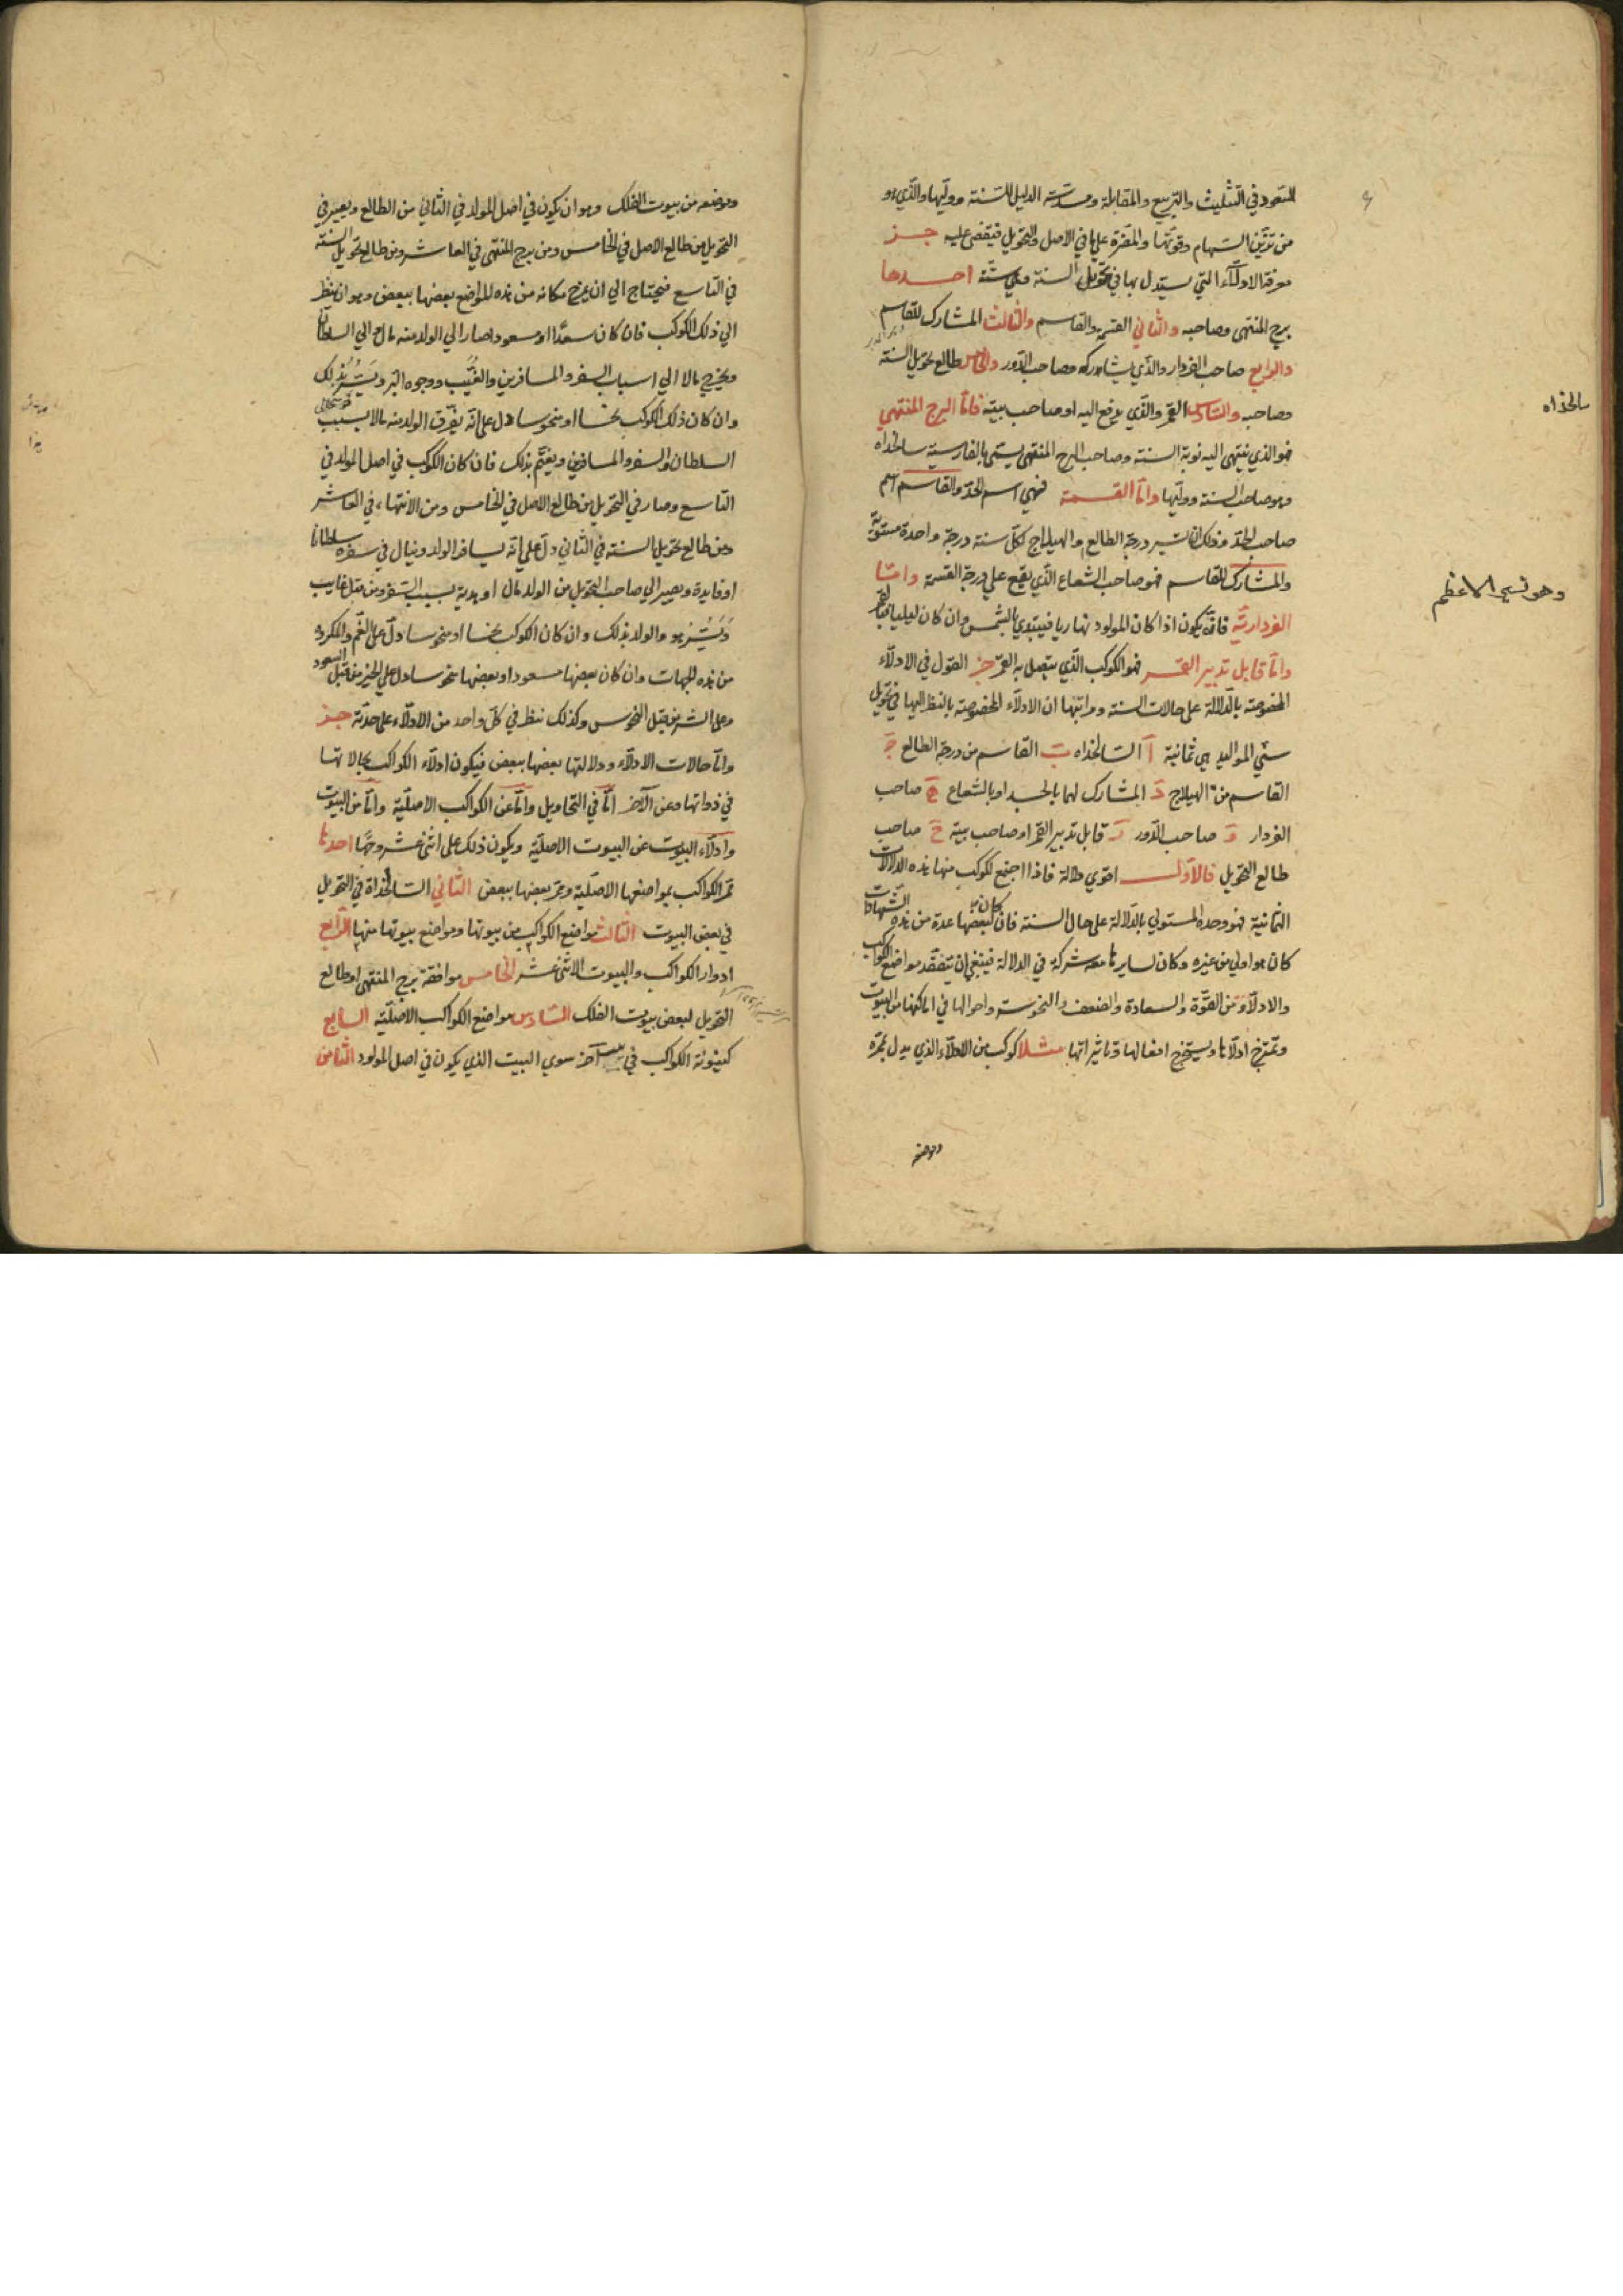 السعود في التثليث والتربيع والمقابلة ومسدّسة الدليل للسنة ووليها والذي هو
من تزيّن السهام وقوتها والمضرة عليها في الاصل والتحويل فيقضى عليه جز
معرفة الادلاء التي يستدل بها في تحويل السنة وهي ستة احدها
برج المنتهى وصاحبه والثاني القسمة والقاسم والثالث المشارك للقاسم
والرابع صاحب الفردار والذي يشاركه وصاحب الدور والخامس طالع تحويل السنة
وصاحبه والسادس القمر والذي يدفع اليه او صاحب بيته فاما البرج المنتهي
فهو الذي ينتهى اليه نوبة السنة وصاحب البرج المنتهى يسمى بالفارسية سالخداه
سالخداه
وهو صاحب السنة ووليها واما القسمة فهي اسم الحد والقاسم اسم
صاحب الحد وذلك ان تسير درجة الطالع والهيلاج لكل سنة درجة واحدة مستوية
والمشارك للقاسم فهو صاحب الشعاع الذي يقع على درجة القسمة واما
الفردارية فانه يكون اذا كان المولود نهاريا فيبتدي بالشمس وان كان ليليا فبالقمر
واما قابل تدبير القمر فهو الكوكب الذي يتصل به القمر جز القول في الادلاء
المخصوصة بالدلالة على حالات السنة ومراتبها ان الادلاء المخصوصة بالنظر اليها في تحويل
سني المواليد هي ثمانية آ السالخداه ب القاسم من درجة الطالع ج
القاسم من الهيلاج د المشارك لهما بالجسد او بالشعاع ه صاحب
الفردار و صاحب الدور ز قابل تدبير القمر او صاحب بيته ح صاحب
طالع التحويل فالاول اقوي دلالة فاذا اجتمع لكوكب منها هذه الدلالات
الثمانية فهو وحده المستولي بالدلالة على حال السنة فان كان لبعضها عدة من هذه الشهادات
كان هو اولي من غيره وكان لسايرها معه شركة في الدلالة فينبغي ان يتفقد مواضع الكواكب
والادلاء من القوة والسعادة والضعف والنحوسة واحوالها في اماكنها من البيوت
وتمتزج ادلاها ويستخرج افعالها وتاثيراتها مثلا كوكب من الادلاء الذي يدل بممرّه
وموضعه
وموضعه من بيوت الفلك وهو ان يكون في اصل المولد في الثاني من الطالع ويصير في
التحويل من طالع الاصل في الخامس ومن برج المنتهى في العاشر ومن طالع تحويل السنة
في التاسع فيحتاج الي ان يمزج مكانه من هذه المواضع بعضها ببعض وهو ان ينظر
الي ذلك الكوكب فان كان سعدا او مسعودا صار الي الولد منه مال الي السلطان
ويخرج مالا الي اسباب السفر والمسافرين والغيّب ووجوه البر ويسرّ بذلك
وان كان ذلك الكوكب نحسا او منحوسا دل على انه يفرق الولد منه مالا بسبب
السلطان والسفر والمسافرين ويغتم بذلك فان كان الكوكب في اصل المولد في
التاسع وصار في التحويل من طالع الاصل في الخامس ومن الانتهاء في العاشر
ومن طالع تحويل السنة في الثاني دل على انه يسافر الولد وينال في سفره سلطانا
او فايدة ويصير الي صاحب التحويل من الولد مال او هدية بسبب السفر ومن قبل غايب
ويسرّ هو والولد بذلك وان كان الكوكب نحسا او منحوسا دل على الغم والمكروه
من هذه الجهات وان كان بعضها مسعودا وبعضها منحوسا دل على الخير من قبل السعود
وعلى الشر من قبل النحوس وكذلك ننظر في كل واحد من الادلاء على حدته جز
واما حالات الادلاء ودلالتها بعضها ببعض فيكون ادلاء الكواكب بحالاتها
في ذواتها وعن الآخر اما في التحاويل واما عن الكواكب الاصلية واما من البيوت
وادلاء البيوت عن البيوت الاصلية ويكون ذلك على اثني عشر وجها احدها
ممر الكواكب بمواضعها الاصلية وممر بعضها ببعض الثاني السالخداة في التحويل
في بعض البيوت الثالث مواضع الكواكب من بيوتها ومواضع بيوتها منها الرابع
ادوار الكواكب والبيوت الاثني عشر الخامس موافقة برج المنتهى او طالع
التحويل لبعض بيوت الفلك السادس مواضع الكواكب الاصلية السابع
كينونة الكواكب في بيت آخر سوي البيت الذي يكون في اصل المولود الثامن